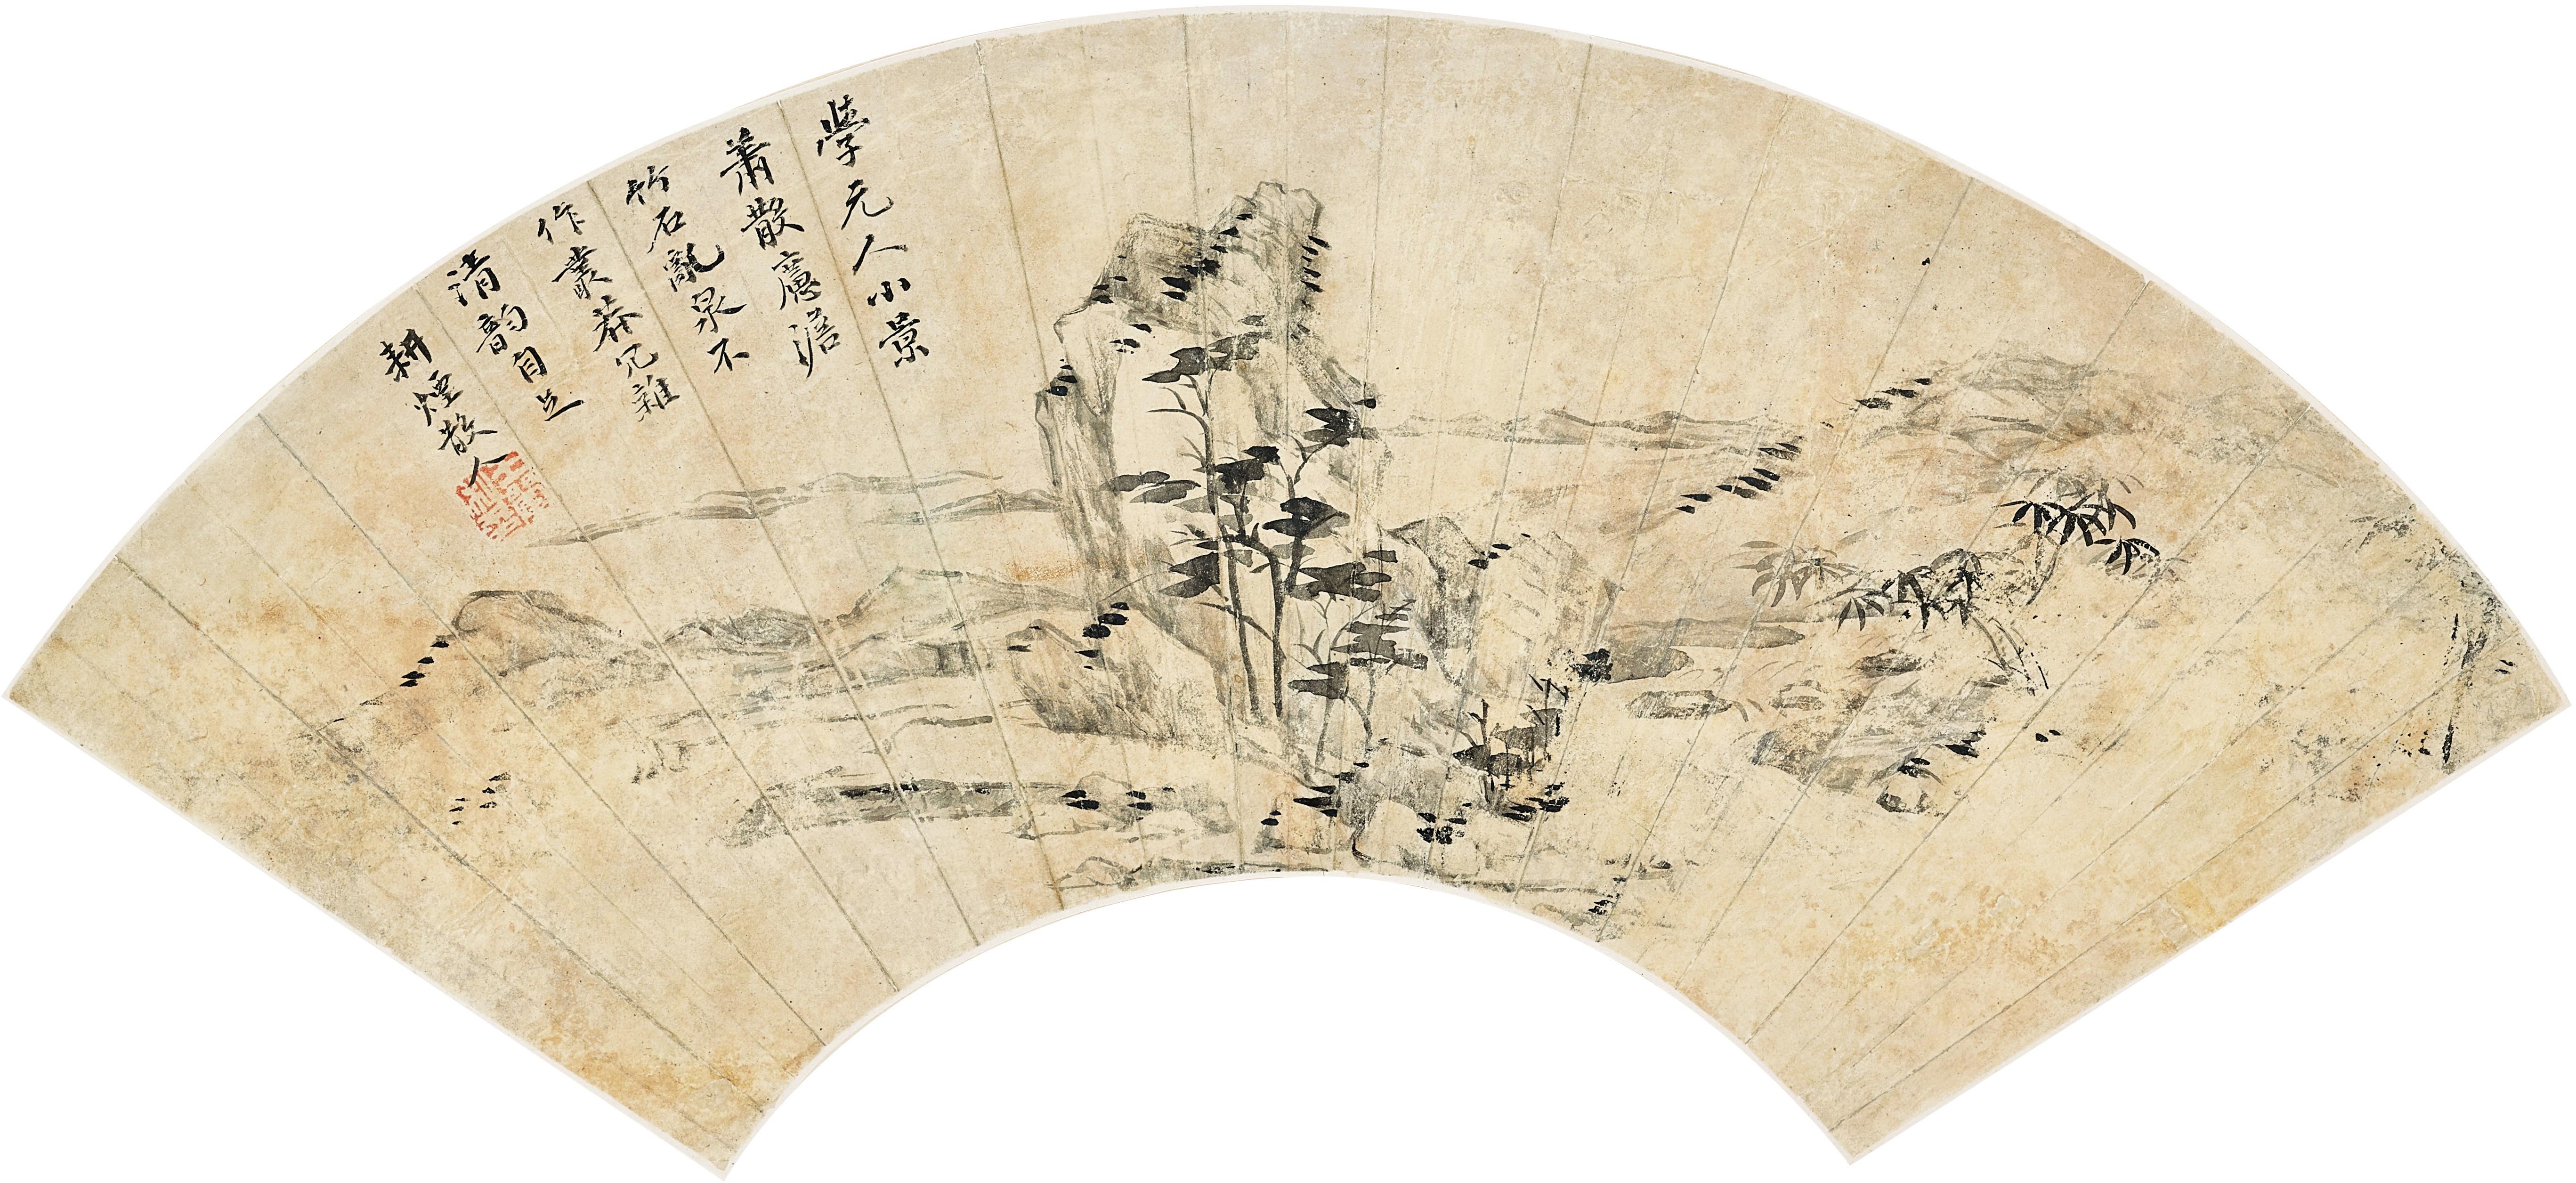 學元人小景
蕭散處澹
竹石亂泉不
作叢莽冗雜
清韵自足
耕煙散人